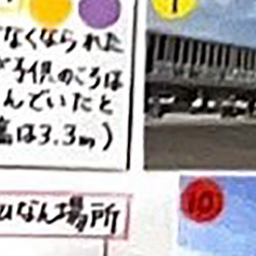 なくなられた
が子供のころは
んでいたと
高は3.3m)
1
ひなん場所
10